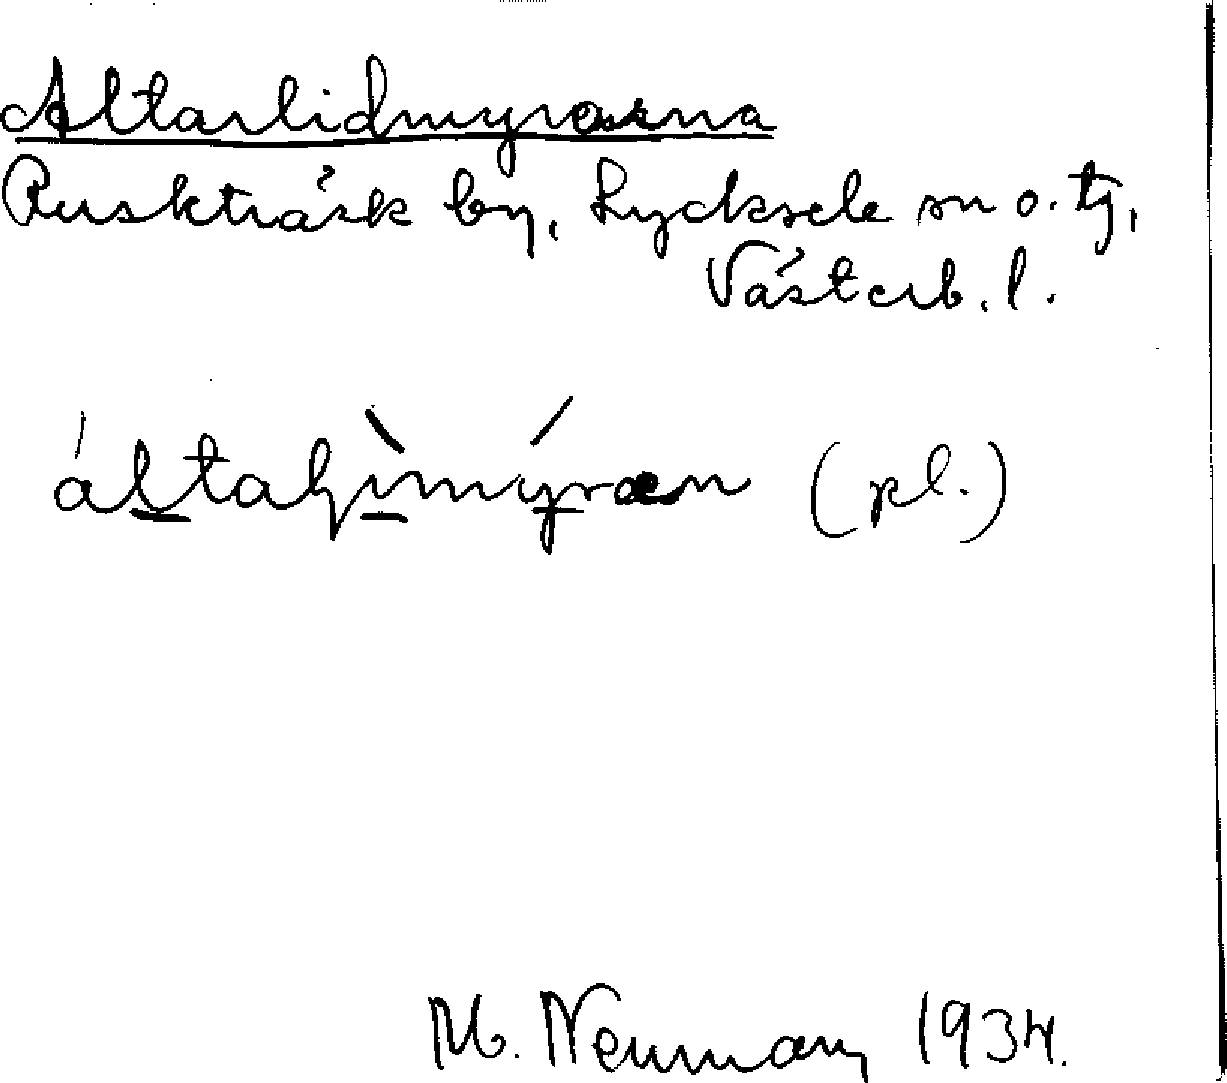 Altarlidmyrarna
Ruskträsk by, Lycksele sn o. tg,
Västerb. l.
(pl.)
M. Neuman, 1934.